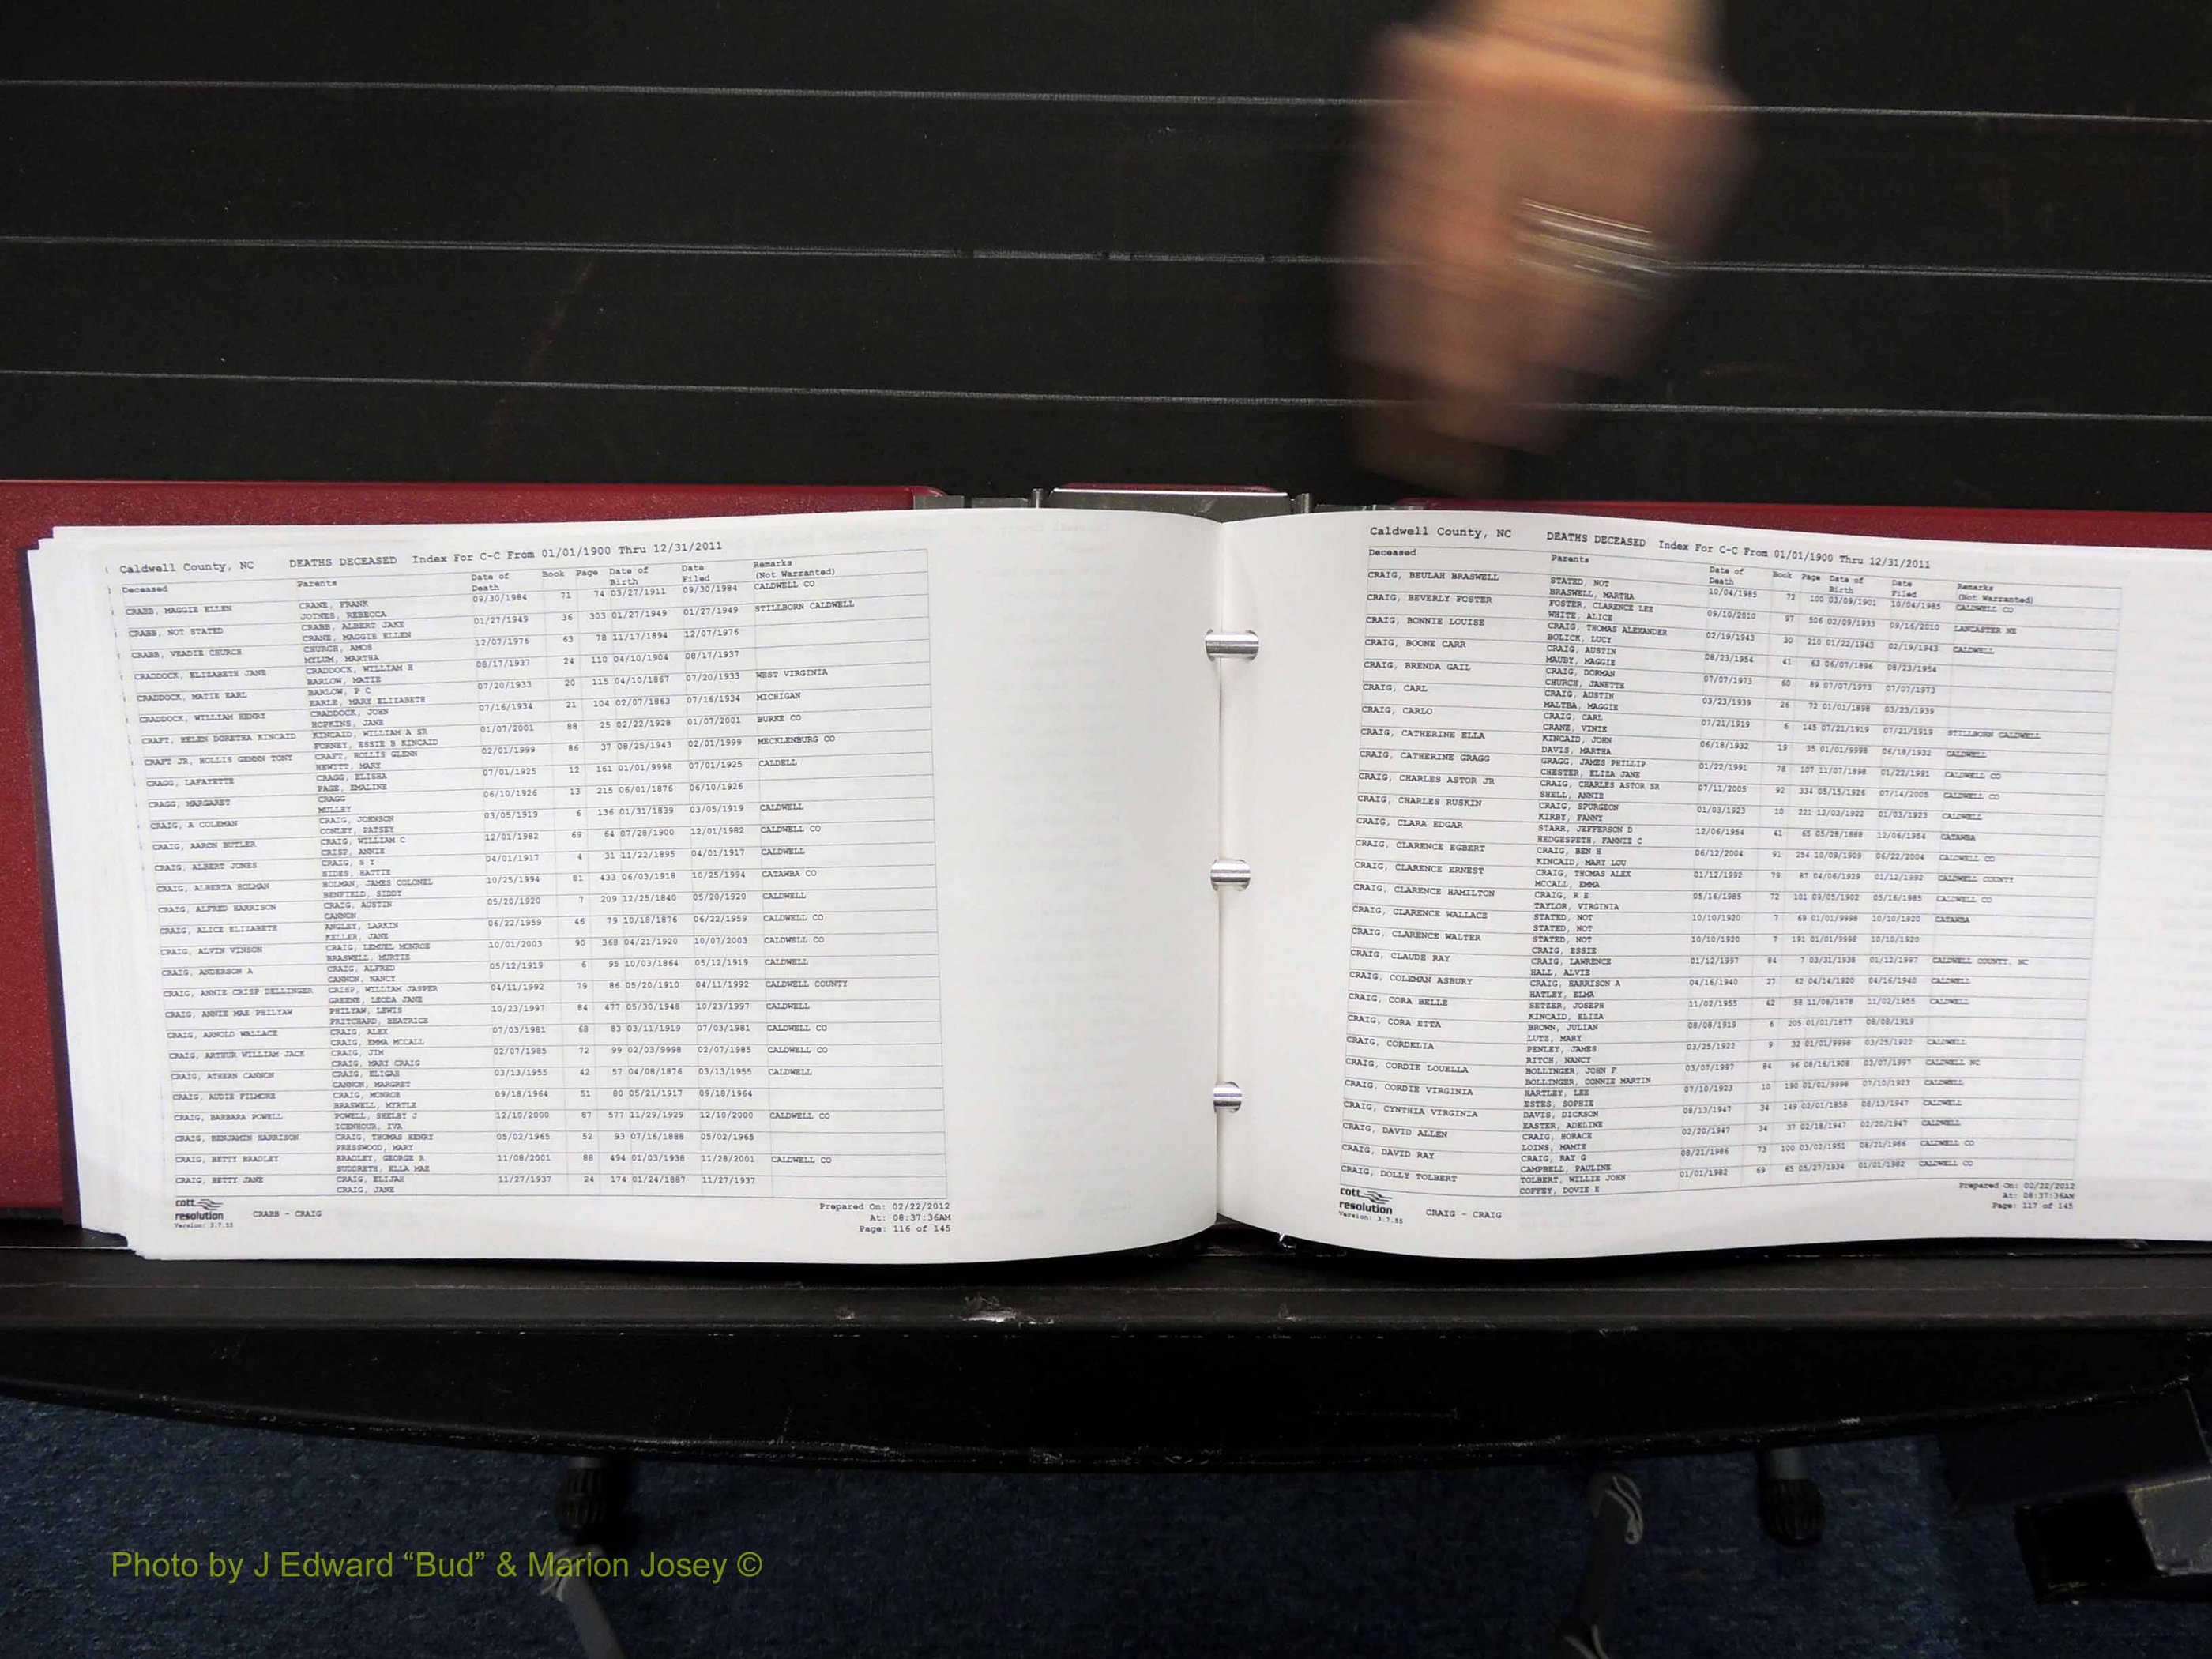 Caldwell County, NC DEATHS DECEASED Index For C-C From 01/01/1900 Thru 12/31/2011
Deceased Parents Date of Death Book Page Date of Birth Date Filed Remarks (Not Warranted)
CRABB, MAGGIE ELLEN CRANE, FRANK 09/30/1984 71 74 03/27/1911 09/30/1984 CALDWELL CO
JOINES, REBECCA
CRABB, NOT STATED CRABB, ALBERT JAKE 01/27/1949 36 303 01/27/1949 01/27/1949 STILLBORN CALDWELL
CRANE, MAGGIE ELLEN
CRABB, VEADIE CHURCH CHURCH, AMOS 12/07/1976 63 78 11/17/1894 12/07/1976
MYLUM, MARTHA
CRADDOCK, ELIZABETH JANE CRADDOCK, WILLIAM H 08/17/1937 24 110 04/10/1904 08/17/1937
BARLOW, MATIE
CRADDOCK, MATIE EARL BARLOW, P C 07/20/1933 20 115 04/10/1867 07/20/1933 WEST VIRGINIA
EARLE, MARY ELIZABETH
CRADDOCK, WILLIAM HENRY CRADDOCK, JOHN 07/16/1934 21 104 02/07/1863 07/16/1934 MICHIGAN
HOPKINS, JANE
CRAFT, HELEN DORETHA KINCAID KINCAID, WILLIAM A SR 01/07/2001 88 25 02/22/1928 01/07/2001 BURKE CO
FORNEY, ESSIE B KINCAID
CRAFT JR, HOLLIS GENNN TONY CRAFT, HOLLIS GLENN 02/01/1999 86 37 08/25/1943 02/01/1999 MECKLENBURG CO
HEWITT, MARY
CRAGG, LAFAYETTE CRAGG, ELISHA 07/01/1925 12 161 01/01/9998 07/01/1925 CALDELL
PAGE, EMALINE
CRAGG, MARGARET CRAGG 06/10/1926 13 215 06/01/1876 06/10/1926
MULLEY
CRAIG, A COLEMAN CRAIG, JOHNSON 03/05/1919 6 136 01/31/1839 03/05/1919 CALDWELL
CONLEY, PATSEY
CRAIG, AARON BUTLER CRAIG, WILLIAM C 12/01/1982 69 64 07/28/1900 12/01/1982 CALDWELL CO
CRISP, ANNIE
CRAIG, ALBERT JONES CRAIG, S Y 04/01/1917 4 31 11/22/1895 04/01/1917 CALDWELL
SIDES, HATTIE
CRAIG, ALBERTA HOLMAN HOLMAN, JAMES COLONEL 10/25/1994 81 433 06/03/1918 10/25/1994 CATAWBA CO
BENFIELD, SIDDY
CRAIG, ALFRED HARRISON CRAIG, AUSTIN 05/20/1920 7 209 12/25/1840 05/20/1920 CALDWELL
CANNON
CRAIG, ALICE ELIZABETH ANGLEY, LARKIN 06/22/1959 46 79 10/18/1876 06/22/1959 CALDWELL CO
KELLER, JANE
CRAIG, ALVIN VINSON CRAIG, LEMUEL MONROE 10/01/2003 90 368 04/21/1920 10/07/2003 CALDWELL CO
BRASWELL, MURTIE
CRAIG, ANDERSON A CRAIG, ALFRED 05/12/1919 6 95 10/03/1864 05/12/1919 CALDWELL
CANNON, NANCY
CRAIG, ANNIE CRISP DELLINGER CRISP, WILLIAM JASPER 04/11/1992 79 86 05/20/1910 04/11/1992 CALDWELL COUNTY
GREENE, LEODA JANE
CRAIG, ANNIE MAE PHILYAW PHILYAW, LEWIS 10/23/1997 84 477 05/30/1948 10/23/1997 CALDWELL
PRITCHARD, BEATRICE
CRAIG, ARNOLD WALLACE CRAIG, ALEX 07/03/1981 68 83 03/11/1919 07/03/1981 CALDWELL CO
CRAIG, EMMA MCCALL
CRAIG, ARTHUR WILLIAM JACK CRAIG, JIM 02/07/1985 72 99 02/03/9998 02/07/1985 CALDWELL CO
CRAIG, MARY CRAIG
CRAIG, ATHERN CANNON CRAIG, ELIGAH 03/13/1955 42 57 04/08/1876 03/13/1955 CALDWELL
CANNON, MARGRET
CRAIG, AUDIE FILMORE CRAIG, MONROE 09/18/1964 51 80 05/21/1917 09/18/1964
BRASWELL, MYRTLE
CRAIG, BARBARA POWELL POWELL, SHELBY J 12/10/2000 87 577 11/29/1929 12/10/2000 CALDWELL CO
ICENHOUR, IVA
CRAIG, BENJAMIN HARRISON CRAIG, THOMAS HENRY 05/02/1965 52 93 07/16/1888 05/02/1965
PRESSWOOD, MARY
CRAIG, BETTY BRADLEY BRADLEY, GEORGE R 11/08/2001 88 494 01/03/1938 11/28/2001 CALDWELL CO
SUDDRETH, ELLA MAE
CRAIG, BETTY JANE CRAIG, ELIJAH 11/27/1937 24 174 01/24/1887 11/27/1937
CRAIG, JANE
cott resolution Version: 3.7.55
CRABB - CRAIG
Prepared On: 02/22/2012
At: 08:37:36AM
Page: 116 of 145
Caldwell County, NC DEATHS DECEASED Index For C-C From 01/01/1900 Thru 12/31/2011
Deceased Parents Date of Death Book Page Date of Birth Date Filed Remarks (Not Warranted)
CRAIG, BEULAH BRASWELL STATED, NOT 10/04/1985 72 100 03/09/1901 10/04/1985 CALDWELL CO
BRASWELL, MARTHA
CRAIG, BEVERLY FOSTER FOSTER, CLARENCE LEE 09/10/2010 97 506 02/09/1933 09/16/2010 LANCASTER NE
WHITE, ALICE
CRAIG, BONNIE LOUISE CRAIG, THOMAS ALEXANDER 02/19/1943 30 210 01/22/1943 02/19/1943 CALDWELL
BOLICK, LUCY
CRAIG, BOONE CARR CRAIG, AUSTIN 08/23/1954 41 63 06/07/1896 08/23/1954
MAUBY, MAGGIE
CRAIG, BRENDA GAIL CRAIG, DORMAN 07/07/1973 60 89 07/07/1973 07/07/1973
CHURCH, JANETTE
CRAIG, CARL CRAIG, AUSTIN 03/23/1939 26 72 01/01/1898 03/23/1939
MALTBA, MAGGIE
CRAIG, CARLO CRAIG, CARL 07/21/1919 6 145 07/21/1919 07/21/1919 STILLBORN CALDWELL
CRANE, VINIE
CRAIG, CATHERINE ELLA KINCAID, JOHN 06/18/1932 19 35 01/01/9998 06/18/1932 CALDWELL
DAVIS, MARTHA
CRAIG, CATHERINE GRAGG GRAGG, JAMES PHILLIP 01/22/1991 78 107 11/07/1898 01/22/1991 CALDWELL CO
CHESTER, ELIZA JANE
CRAIG, CHARLES ASTOR JR CRAIG, CHARLES ASTOR SR 07/11/2005 92 334 05/15/1926 07/14/2005 CALDWELL CO
SHELL, ANNIE
CRAIG, CHARLES RUSKIN CRAIG, SPURGEON 01/03/1923 10 221 12/03/1922 01/03/1923 CALDWELL
KIRBY, FANNY
CRAIG, CLARA EDGAR STARR, JEFFERSON D 12/06/1954 41 65 05/28/1888 12/06/1954 CATAWBA
HEDGESPETH, FANNIE C
CRAIG, CLARENCE EGBERT CRAIG, BEN H 06/12/2004 91 254 10/09/1909 06/22/2004 CALDWELL CO
KINCAID, MARY LOU
CRAIG, CLARENCE ERNEST CRAIG, THOMAS ALEX 01/12/1992 79 87 04/06/1929 01/12/1992 CALDWELL COUNTY
MCCALL, EMMA
CRAIG, CLARENCE HAMILTON CRAIG, R E 05/16/1985 72 101 09/05/1902 05/16/1985 CALDWELL CO
TAYLOR, VIRGINIA
CRAIG, CLARENCE WALLACE STATED, NOT 10/10/1920 7 69 01/01/9998 10/10/1920 CATAWBA
STATED, NOT
CRAIG, CLARENCE WALTER STATED, NOT 10/10/1920 7 191 01/01/9998 10/10/1920
CRAIG, ESSIE
CRAIG, CLAUDE RAY CRAIG, LAWRENCE 01/12/1997 84 7 03/31/1938 01/12/1997 CALDWELL COUNTY, NC
HALL, ALVIE
CRAIG, COLEMAN ASBURY CRAIG, HARRISON A 04/16/1940 27 62 04/14/1920 04/16/1940 CALDWELL
HATLEY, ELMA
CRAIG, CORA BELLE SETZER, JOSEPH 11/02/1955 42 58 11/08/1878 11/02/1955 CALDWELL
KINCAID, ELIZA
CRAIG, CORA ETTA BROWN, JULIAN 08/08/1919 6 205 01/01/1877 08/08/1919
LUTZ, MARY
CRAIG, CORDELIA PENLEY, JAMES 03/25/1922 9 32 01/01/9998 03/25/1922 CALDWELL
RITCH, NANCY
CRAIG, CORDIE LOUELLA BOLLINGER, JOHN F 03/07/1997 84 96 08/16/1908 03/07/1997 CALDWELL NC
BOLLINGER, CONNIE MARTIN
CRAIG, CORDIE VIRGINIA HARTLEY, LEE 07/10/1923 10 190 01/01/9998 07/10/1923 CALDWELL
ESTES, SOPHIE
CRAIG, CYNTHIA VIRGINIA DAVIS, DICKSON 08/13/1947 34 149 02/01/1858 08/13/1947 CALDWELL
EASTER, ADELINE
CRAIG, DAVID ALLEN CRAIG, HORACE 02/20/1947 34 37 02/18/1947 02/20/1947 CALDWELL
LOINS, MAMIE
CRAIG, DAVID RAY CRAIG, RAY G 08/21/1986 73 100 03/02/1951 08/21/1986 CALDWELL CO
CAMPBELL, PAULINE
CRAIG, DOLLY TOLBERT TOLBERT, WILLIE JOHN 01/01/1982 69 65 05/27/1934 01/01/1982 CALDWELL CO
COFFEY, DOVIE E
cott resolution Version: 3.7.55
CRAIG - CRAIG
Prepared On: 02/22/2012
At: 08:37:36AM
Page: 117 of 145
Photo by J Edward “Bud” & Marion Josey ©